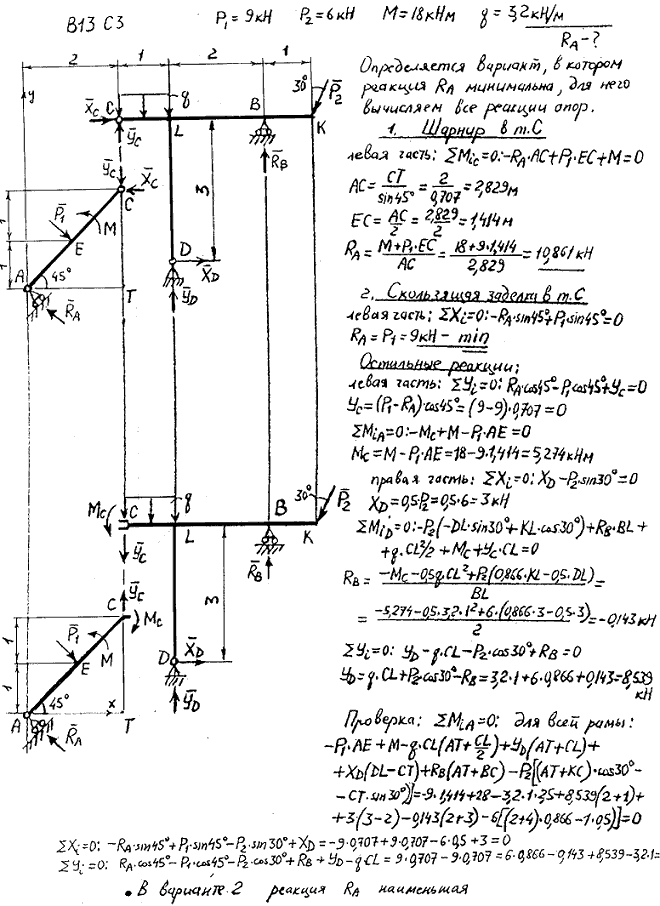 В13 С3
P₁ = 9кН P₂ = 6кН M = 18кНм q = 3,2кН/м
R_A - ?
Определяется вариант, в котором
реакция R_A минимальна, для него
вычисляем все реакции опор.
1. Шарнир в т.С
левая часть: ΣM_iC=0: -R_A·AC+P₁·EC+M=0
AC = CT/sin45° = 2/0,707 = 2,829м
EC = AC/2 = 2,829/2 = 1,414м
R_A = (M+P₁·EC)/AC = (18+9·1,414)/2,829 = 10,861кН
2. Скользящая заделка в т.С
левая часть: ΣX_i=0: -R_A·sin45°+P₁sin45°=0
R_A = P₁ = 9кН - min
Остильные реакции:
левая часть: ΣY_i=0: R_A·cos45°-P₁cos45°+Y_C=0
Y_C=(P₁-R_A)·cos45°=(9-9)·0,707=0
ΣM_iA=0: -M_C+M-P₁·AE=0
M_C = M-P₁·AE=18-9·1,414=5,274кНм
правая часть: ΣX_i=0: X_D-P₂sin30°=0
X_D=0,5·P₂=0,5·6=3кН
ΣM_iD=0: -P₂(-DL·sin30°+KL·cos30°)+R_B·BL+
+q·CL²/2+M_C+Y_C·CL=0
R_B = (-M_C-0,5q·CL²+P₂(0,866·KL-0,5·DL))/BL =
= (-5,274-0,5·3,2·1²+6·(0,866·3-0,5·3))/2 = -0,143кН
ΣY_i=0: Y_D-q·CL-P₂·cos30°+R_B=0
Y_D=q·CL+P₂·cos30°-R_B=3,2·1+6·0,866+0,143=8,539
кН
Проверка: ΣM_iA=0: для всей рамы:
-P₁·AE+M-q·CL(AT+CL/2)+Y_D(AT+CL)+
+X_D(DL-CT)+R_B(AT+BC)-P₂[(AT+KC)·cos30°-
-CT·sin30°)]=-9·1,414+28-3,2·1·2,5+8,539(2+1)+
+3(3-2)-0,143(2+3)-6[(2+4)·0,866-1·0,5)]=0
ΣX_i=0: -R_A·sin45°+P₁·sin45°-P₂·sin30°+X_D=-9·0,707+9·0,707-6·0,5+3=0
ΣY_i=0: R_A·cos45°-P₁·cos45°-P₂·cos30°+R_B+Y_D-q·CL=9·0,707-9·0,707=6·0,866-0,143+8,539-3,2·1=
• В варианте 2 реакция R_A наименьшая
2 1 2 1
y
X̄_C C q B 30° P̄₂
Ȳ_C L R̄_B K
Ȳ_C X̄_C
C 3
1 P̄₁ M
E D X̄_D
1 A 45° Ȳ_D
R̄_A T
M_C C q B 30° P̄₂
Ȳ_C L R̄_B K
Ȳ_C
C M_C 3
1 P̄₁ M
E D X̄_D
1 A 45° x Ȳ_D
R̄_A T